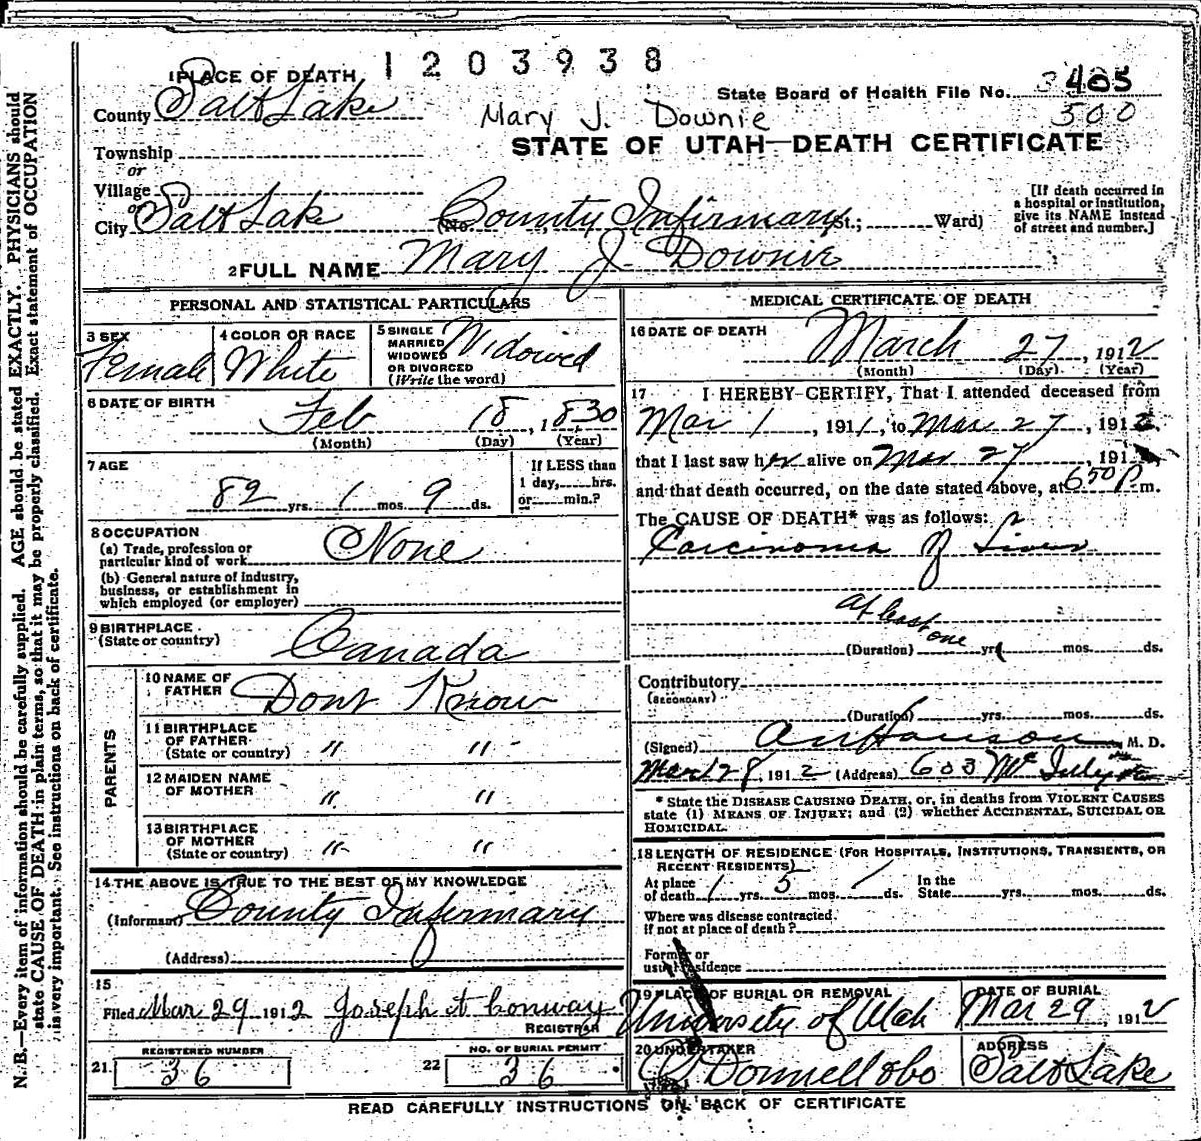 1203938
1 PLACE OF DEATH
County Salt Lake
State Board of Health File No. 405
500
Mary J. Downie
STATE OF UTAH—DEATH CERTIFICATE
Township
or
Village
or
City Salt Lake (No. County Infirmary St.; Ward)
[If death occurred in a hospital or institution, give its NAME instead of street and number.]
2 FULL NAME Mary J. Downie
PERSONAL AND STATISTICAL PARTICULARS
3 SEX Female
4 COLOR OR RACE White
5 SINGLE MARRIED WIDOWED OR DIVORCED (Write the word) Widowed
6 DATE OF BIRTH
Feb 18, 1830
(Month) (Day) (Year)
7 AGE
82 yrs. 1 mos. 9 ds.
If LESS than 1 day, hrs. or min.?
8 OCCUPATION
(a) Trade, profession or particular kind of work None
(b) General nature of industry, business, or establishment in which employed (or employer)
9 BIRTHPLACE
(State or country) Canada
PARENTS
10 NAME OF FATHER Dont Know
11 BIRTHPLACE OF FATHER (State or country) " "
12 MAIDEN NAME OF MOTHER " "
13 BIRTHPLACE OF MOTHER (State or country) " "
14 THE ABOVE IS TRUE TO THE BEST OF MY KNOWLEDGE
(Informant) County Infirmary
(Address)
15
Filed Mar 29 1912 Joseph H Conway
REGISTRAR
21. REGISTERED NUMBER 36
22 NO. OF BURIAL PERMIT 36
MEDICAL CERTIFICATE OF DEATH
16 DATE OF DEATH
March 27, 1912
(Month) (Day) (Year)
17 I HEREBY CERTIFY, That I attended deceased from
Mar 1, 1911, to Mar 27, 1912.
that I last saw her alive on Mar 27, 191
and that death occurred, on the date stated above, at 650 P m.
The CAUSE OF DEATH* was as follows:
Carcinoma of Liver
at least one
(Duration) yrs. mos. ds.
Contributory
(SECONDARY)
(Duration) yrs. mos. ds.
(Signed) M. D.
Mar 28, 1912 (Address) 603
* State the DISEASE CAUSING DEATH, or, in deaths from VIOLENT CAUSES
state (1) MEANS OF INJURY; and (2) whether ACCIDENTAL, SUICIDAL OR
HOMICIDAL.
18 LENGTH OF RESIDENCE (FOR HOSPITALS, INSTITUTIONS, TRANSIENTS, OR
RECENT RESIDENTS)
At place of death 1 yrs. 5 mos. / ds. In the State yrs. mos. ds.
Where was disease contracted.
If not at place of death?
Former or
usual residence
19 PLACE OF BURIAL OR REMOVAL University of Utah
DATE OF BURIAL Mar 29, 1912
20 UNDERTAKER O'Donnell & Co
ADDRESS Salt Lake
READ CAREFULLY INSTRUCTIONS ON BACK OF CERTIFICATE
N. B.—Every item of information should be carefully supplied. AGE should be stated EXACTLY. PHYSICIANS should
state CAUSE OF DEATH in plain terms, so that it may be properly classified. Exact statement of OCCUPATION
is very important. See instructions on back of certificate.